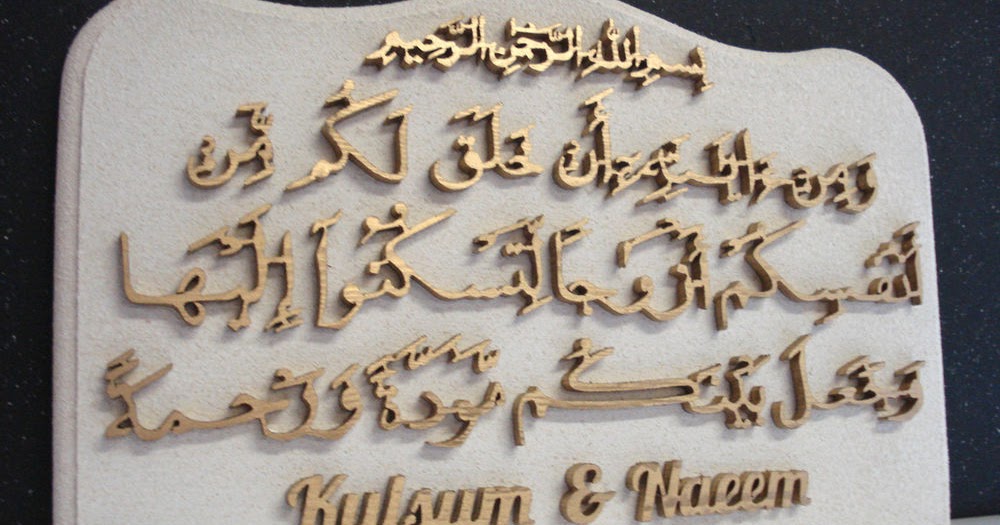 بِسمِ اللهِ الرَّحْمٰنِ الرَّحِيمِ
وَمِنْ اٰيٰتِهٖ أَنْ خَلَقَ لَكُم مِّنْ
أَنْفُسِكُمْ أَزْوَجًا لِّتَسْكُنُوٓا إِلَيْهَا
وَجَعَلَ بَيْنَكُم مَّوَدَّةً وَرَحْمَةً
Kulsum & Naeem